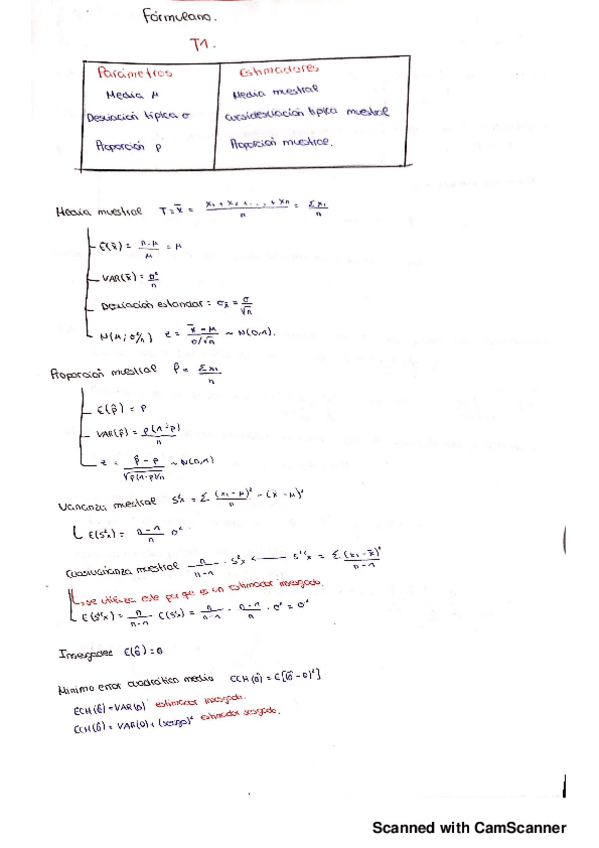 Formulario.
T1.
Parámetros Estimadores
Media μ Media muestral
Desviación típica σ Cuasidesviación típica muestral
Proporción p Proporción muestral.
Media muestral T = x̄ = (x₁ + x₂ + ... + xn)/n = Σxi/n
E(x̄) = n·μ/μ = μ
VAR(x̄) = σ²/n
Desviación estandar: σx̄ = σ/√n
N(μ; σ²/n) z = (x̄ - μ)/(σ/√n) ~ N(0,1).
Proporción muestral p̂ = Σxi/n
E(p̂) = p
VAR(p̂) = p(1-p)/n
z = (p̂ - p)/√(p(1-p)/n) ~ N(0,1)
Varianza muestral S²x = Σ (xi - μ)²/n - (x̄ - μ)²
E(S²x) = (n-1)/n σ²
Cuasivarianza muestral n/(n-1) · S²x <— S'²x = Σ (xi - x̄)²/(n-1)
se utiliza este porque es un estimador insesgado.
E(S'²x) = n/(n-1) · E(S²x) = n/(n-1) · (n-1)/n · σ² = σ²
Insesgadez E(θ̂) = θ
Minimo error cuadrático medio ECM(θ̂) = E[(θ̂ - θ)²]
ECM(θ̂) = VAR(θ̂) estimador insesgado.
ECM(θ̂) = VAR(θ) + (sesgo)² estimador sesgado.
Scanned with CamScanner